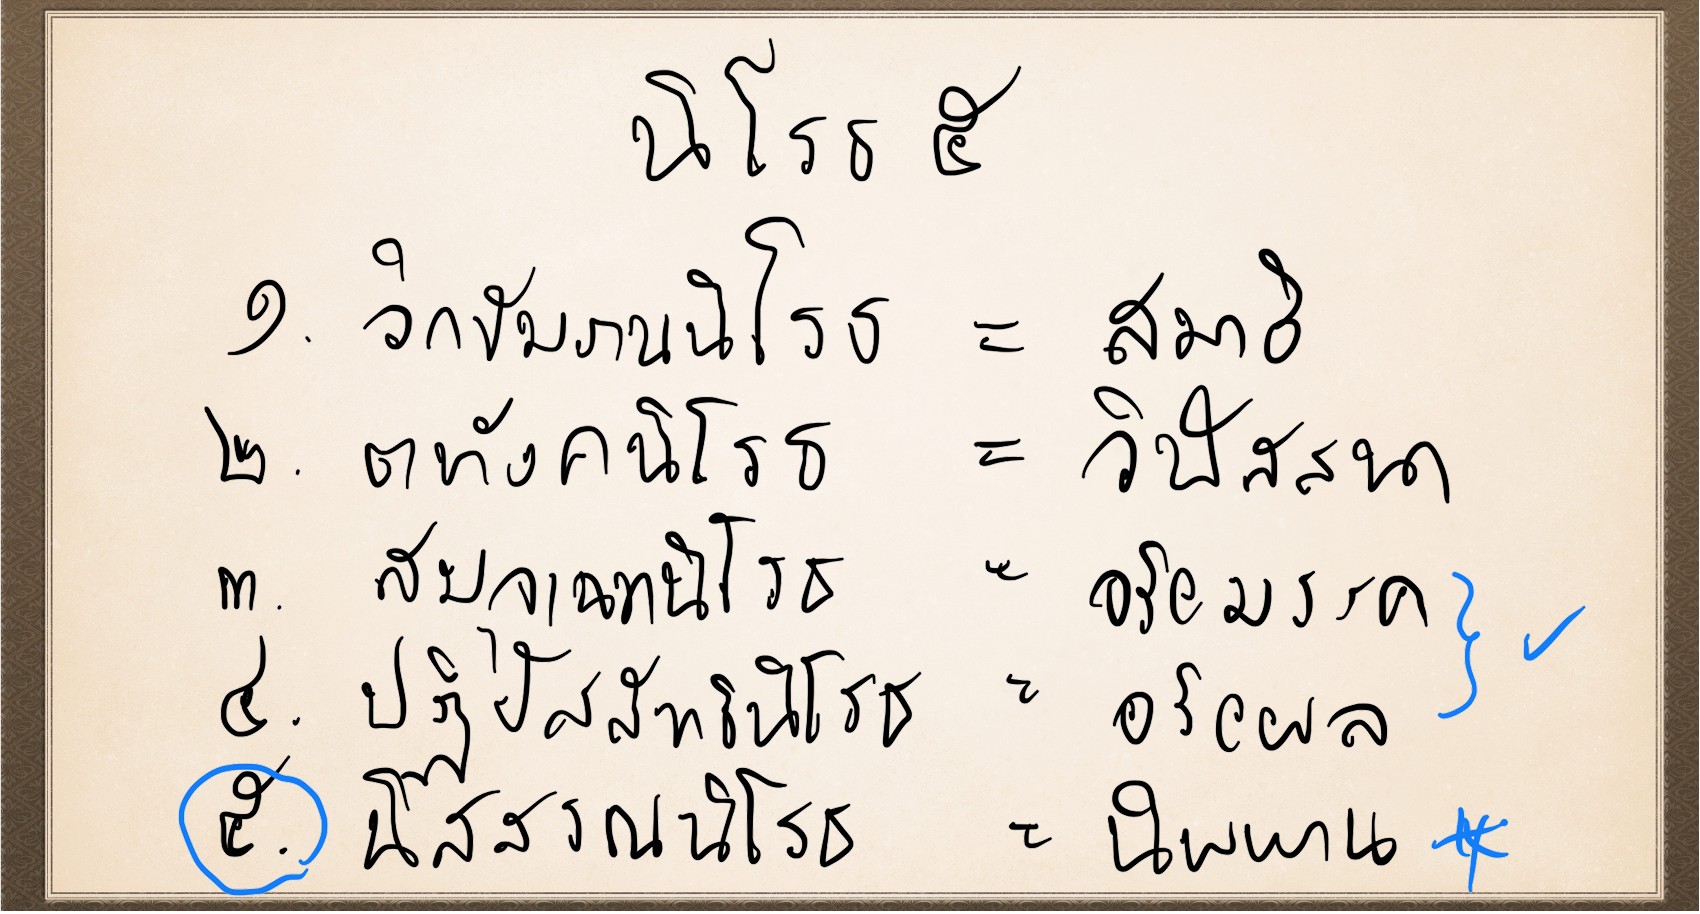 นิโรธ ๕
๑. วิกขัมภนนิโรธ = สมาธิ
๒. ตทังคนิโรธ = วิปัสสนา
๓. สมุจเฉทนิโรธ = อริยมรรค
๔. ปฏิปัสสัทธินิโรธ = อริยผล
๕. นิสสรณนิโรธ = นิพพาน